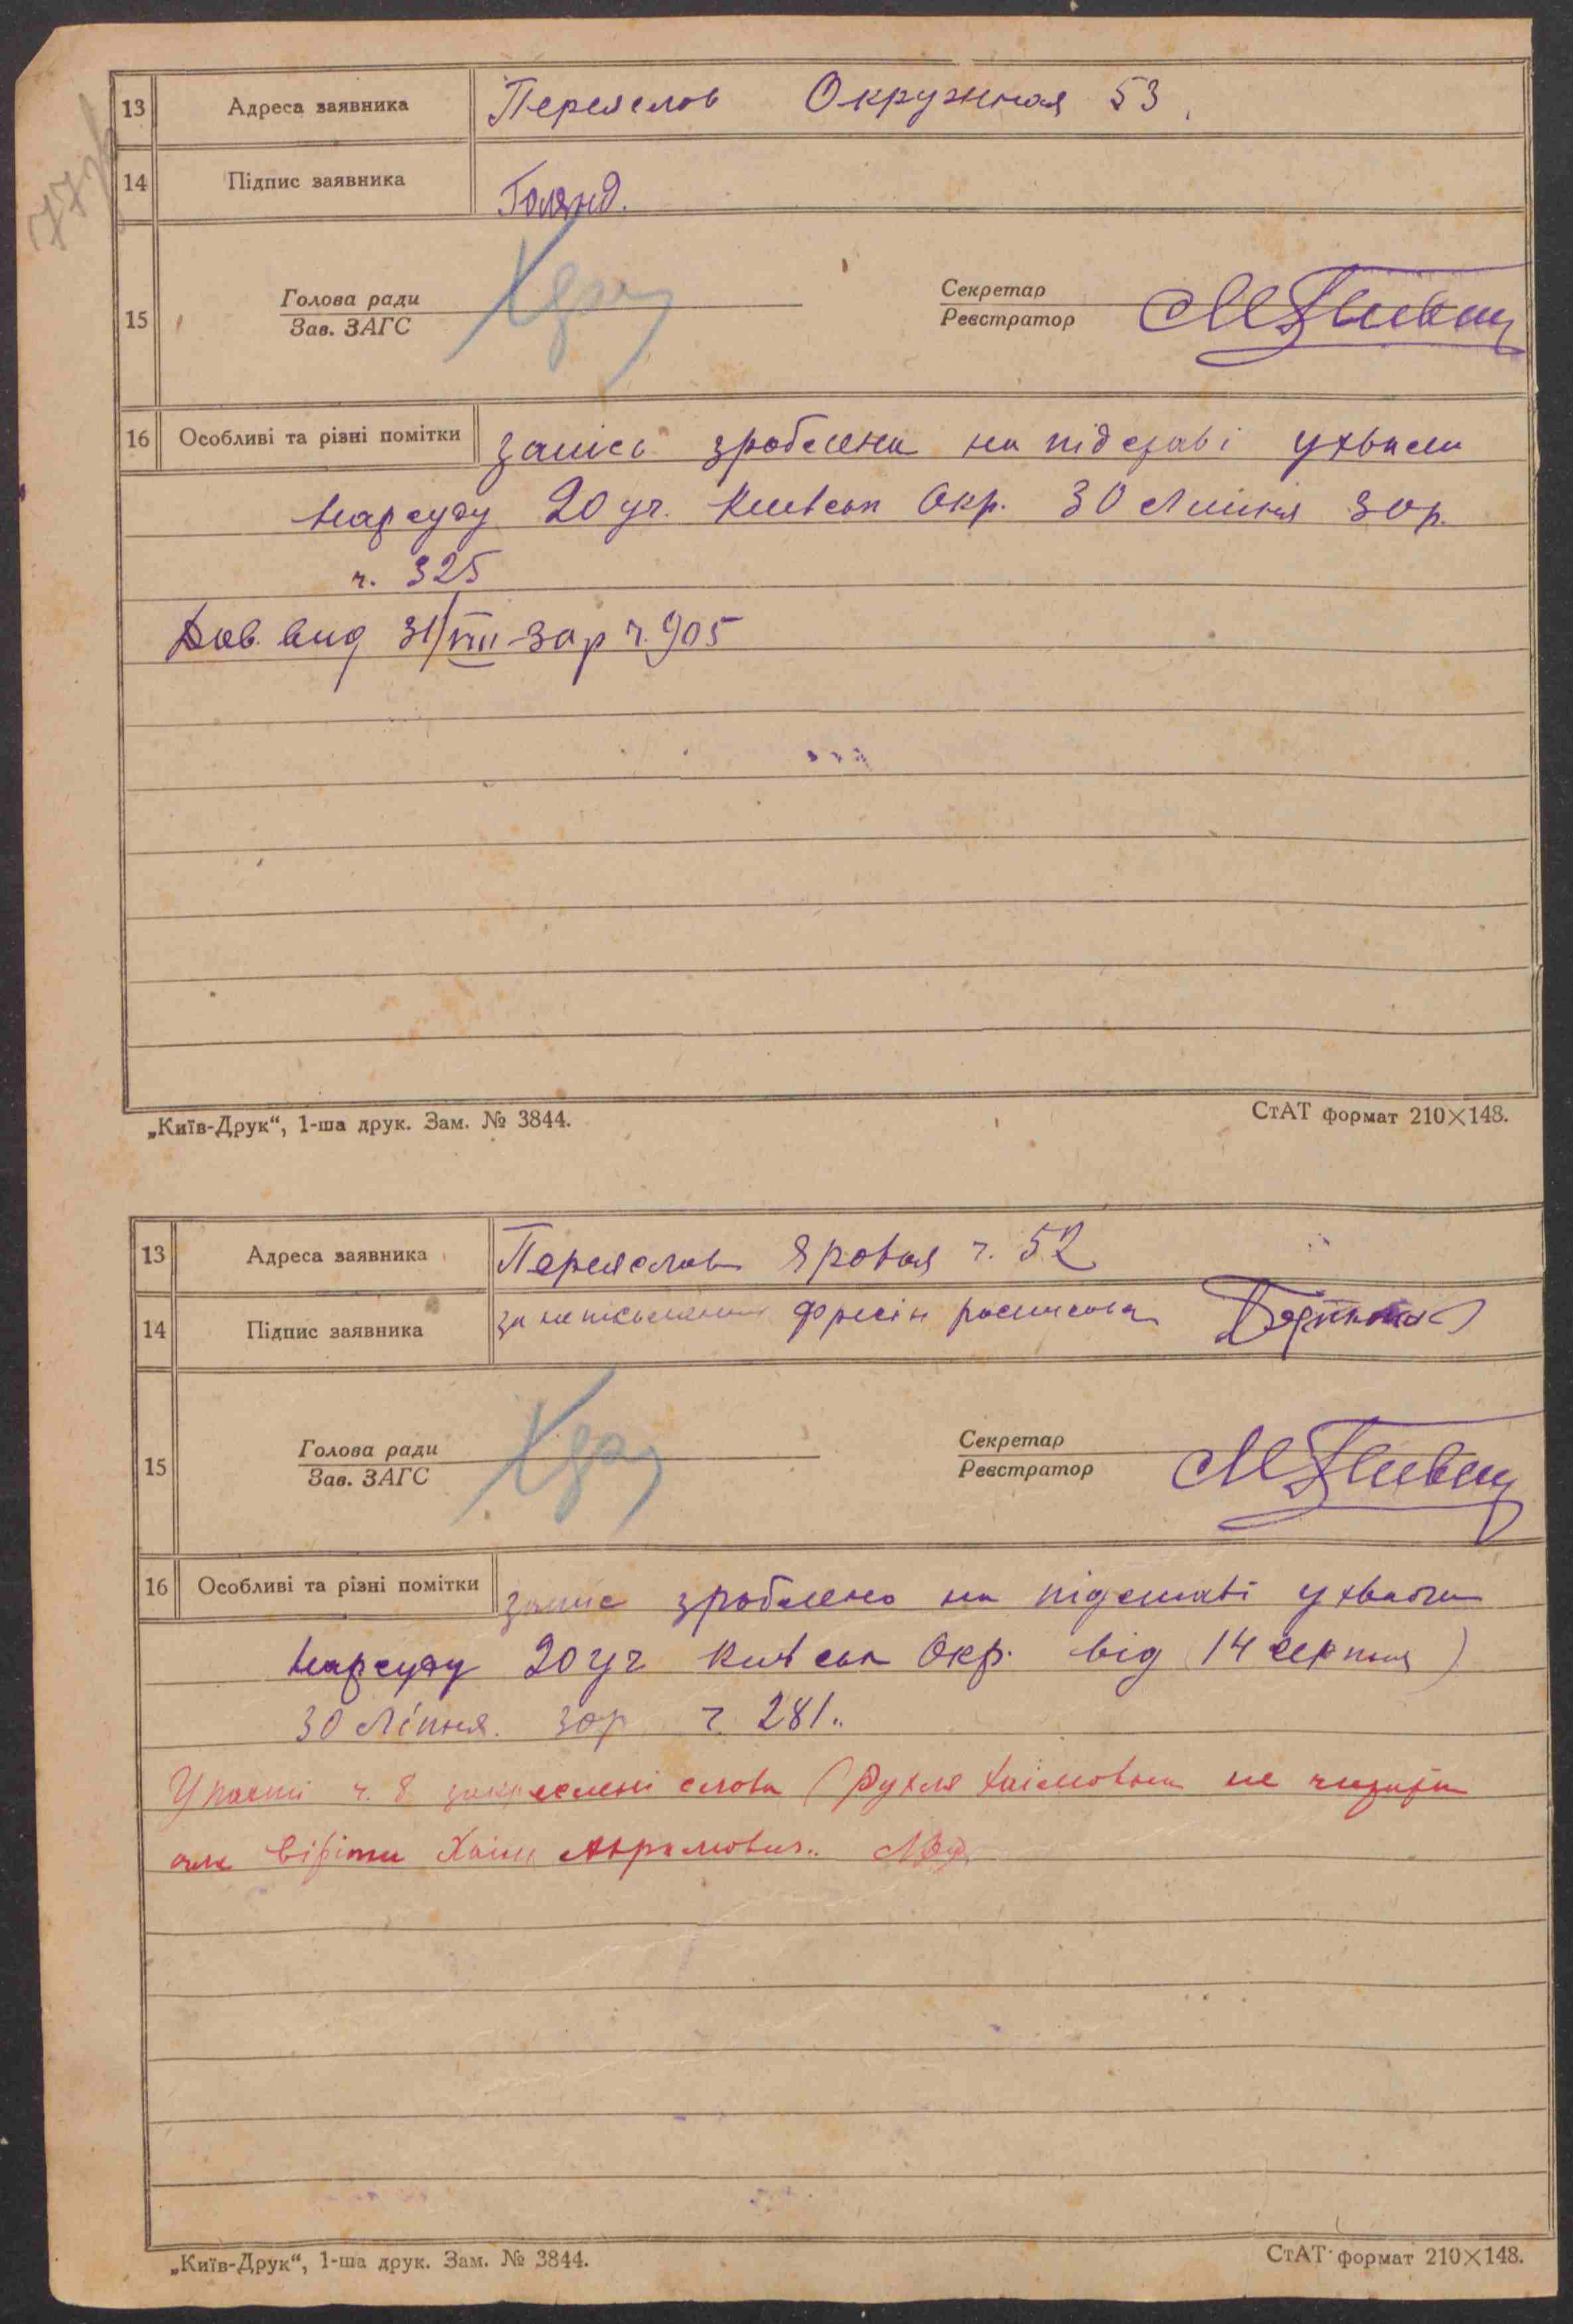 13 Адреса заявника Переяслов Окружная 53.
14 Підпис заявника Голянд.
15 Голова ради Секретар
Зав. ЗАГС Реєстратор
16 Особливі та різні помітки запісь зроблена на підставі ухвали
Нарсуду 20 уч. Київськ Окр. 30 Липня 30 р.
ч. 325
Дов. вид 31/VIII-30 р ч. 905
„Київ-Друк“, 1-ша друк. Зам. № 3844. СтАТ формат 210×148.
13 Адреса заявника Переяслав Яровая ч. 52
14 Підпис заявника за неписьменни росписова
15 Голова ради Секретар
Зав. ЗАГС Реєстратор
16 Особливі та різні помітки запис зроблено на підставі ухвали
Нарсуду 20 уч Київськ Окр. від (14 серпня)
30 Ліпня. 30 р ч 281..
У часті ч. 8 закреслені слова (Рухля Хаімовна не читати
але вірити Хаім Аврамович..
„Київ-Друк“, 1-ша друк. Зам. № 3844. СтАТ формат 210×148.